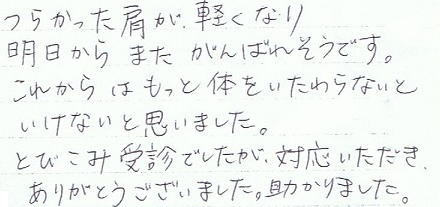 つらかった肩が、軽くなり
明日から また がんばれそうです。
これからは もっと 体をいたわらないと
いけないと思いました。
とびこみ 受診でしたが、対応いただき、
ありがとうございました。助かりました。